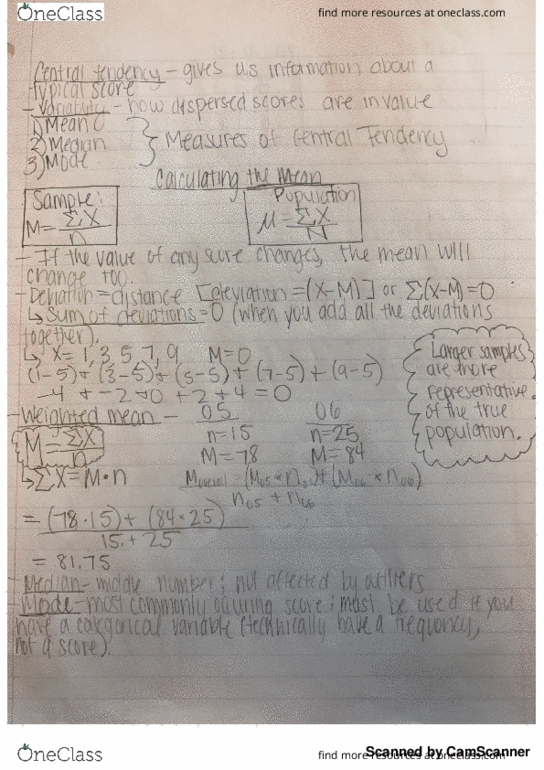 OneClass
find more resources at oneclass.com
Central tendency - gives us information about a
typical score
- Variability - how dispersed scores are in value
1) Mean
2) Median
3) Mode
Measures of Central Tendency
Calculating the Mean
Sample:
M = ΣX
n
Population
μ = ΣX
N
- If the value of any score changes, the mean will
change too.
- Deviation = distance [deviation = (X-M)] or Σ(X-M)=0
↳ Sum of deviations = 0 (when you add all the deviations
together).
↳ X = 1, 3, 5, 7, 9 M=0
(1-5)+(3-5)+(5-5)+(7-5)+(9-5)
-4 + -2 + 0 + 2 + 4 = 0
Larger samples
are more
representative
of the true
population.
- Weighted mean -
05
06
M = ΣX
n
n=15
n=25
M=78
M=84
↳ ΣX = M·n
Moverall = (M05 × n05) + (M06 × n06)
n05 + n06
= (78·15) + (84×25)
15 + 25
= 81.75
- Median - middle number; not affected by outliers
- Mode - most commonly occuring score; must be used if you
have a categorical variable (technically have a frequency,
not a score).
OneClass
find more resources at oneclass.com
Scanned by CamScanner